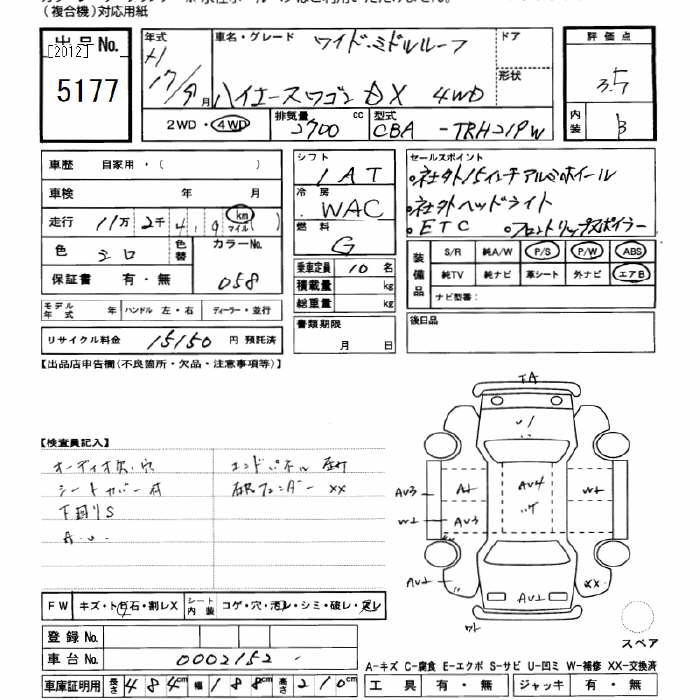 (複合機)対応用紙
出品No.
[2012]
5177
年式
H
17/9月
車名・グレード
ワイド・ミドルルーフ
ハイエースワゴン DX 4WD
ドア
形状
評価点
3.5
内装
B
2WD・4WD
排気量 2700 cc
型式 CBA -TRH219W
車歴 自家用・( )
車検 年 月
走行 11万 2千 4,9 km マイル
色 シロ
色替
カラーNo. 058
保証書 有・無
シフト 1AT
冷房 WAC
燃料 G
乗車定員 10 名
積載量 kg
総重量 kg
セールスポイント
・社外15インチアルミホイール
・社外ヘッドライト
・ETC ・フロントリップスポイラー
装備品
S/R 純A/W P/S P/W ABS
純TV 純ナビ 革シート 外ナビ エアB
ナビ型番:
モデル年式 年 ハンドル 左・右 ディーラー・並行
リサイクル料金 15150 円 預託済
書類期限
月 日
後日品
【出品店申告欄(不良箇所・欠品・注意事項等)】
【検査員記入】
オーディオ欠、穴
シートカバー付
下回りS
A.U.
××
TA
U1
AV3 A1 AV4 W1
W1 AV3
AV2 AV2 ××
FW キズ・ト石・割レX シート内装 コゲ・穴・汚レ・シミ・破レ・スレ
登録 No.
車台 No. 0002152
スペア
A-キズ C-腐食 E-エクボ S-サビ U-凹ミ W-補修 XX-交換済
車庫証明用 長さ 484cm 幅 188cm 高さ 210cm
工具 有・無 ジャッキ 有・無